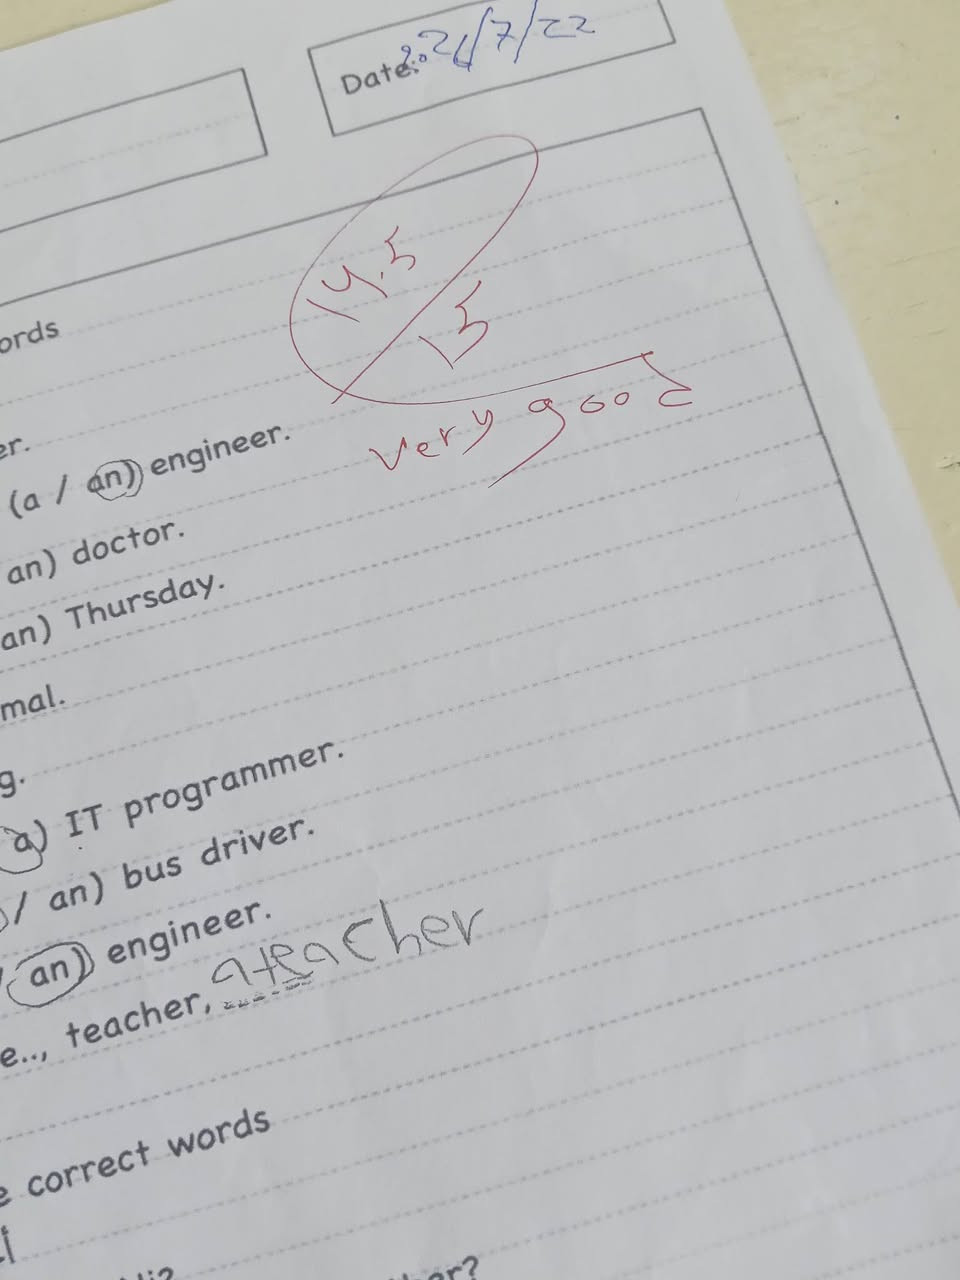 Date: 2026/7/22
14.5
15
very good
ords
er.
(a / an) engineer.
an) doctor.
an) Thursday.
mal.
g.
a) IT programmer.
/ an) bus driver.
an) engineer.
e.., teacher, a teacher
e correct words
?
er?